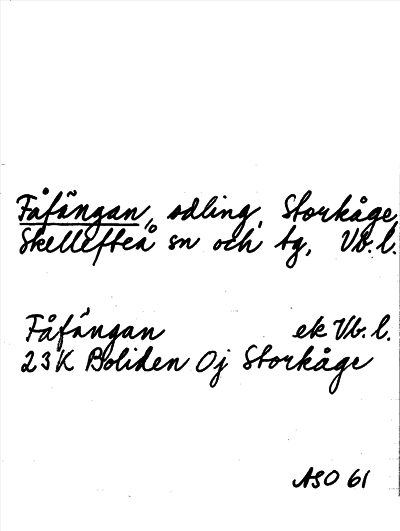 Fåfängan, odling, Storkåge,
Skellefteå sn och tg, Vb. l.
Fåfängan ek Vb. l.
23K Boliden Oj Storkåge
ASO 61